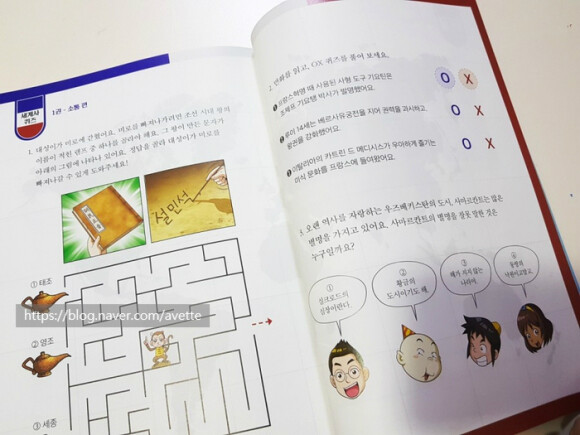 세계사
퀴즈
1권 - 소통 편
1. 대성이가 미로에 갇혔어요. 미로를 빠져나가려면 조선 시대 왕의
이름이 적힌 램프 중 하나를 골라야 해요. 그 왕이 만든 문자가
아래의 그림에 나타나 있어요. 정답을 골라 대성이가 미로를
빠져나갈 수 있게 도와주세요!
설민석
① 태조
② 영조
③ 세종
https://blog.naver.com/avette
2. 만화를 읽고, OX 퀴즈를 풀어 보세요.
❶ 프랑스혁명 때 사용된 사형 도구 기요틴은
조제프 기요탱 박사가 발명했어요.
O X
❷ 루이 14세는 베르사유궁전을 지어 권력을 과시하고,
왕권을 강화했어요.
O X
❸ 이탈리아의 카트린 드 메디시스가 우아하게 즐기는
미식 문화를 프랑스에 들여왔어요.
O X
3. 오랜 역사를 자랑하는 우즈베키스탄의 도시, 사마르칸트는 많은
별명을 가지고 있어요. 사마르칸트의 별명을 잘못 말한 것은
누구일까요?
①
실크로드의
심장이란다.
②
황금의
도시이기도 해.
③
해가 지지 않는
나라야.
④
동방의